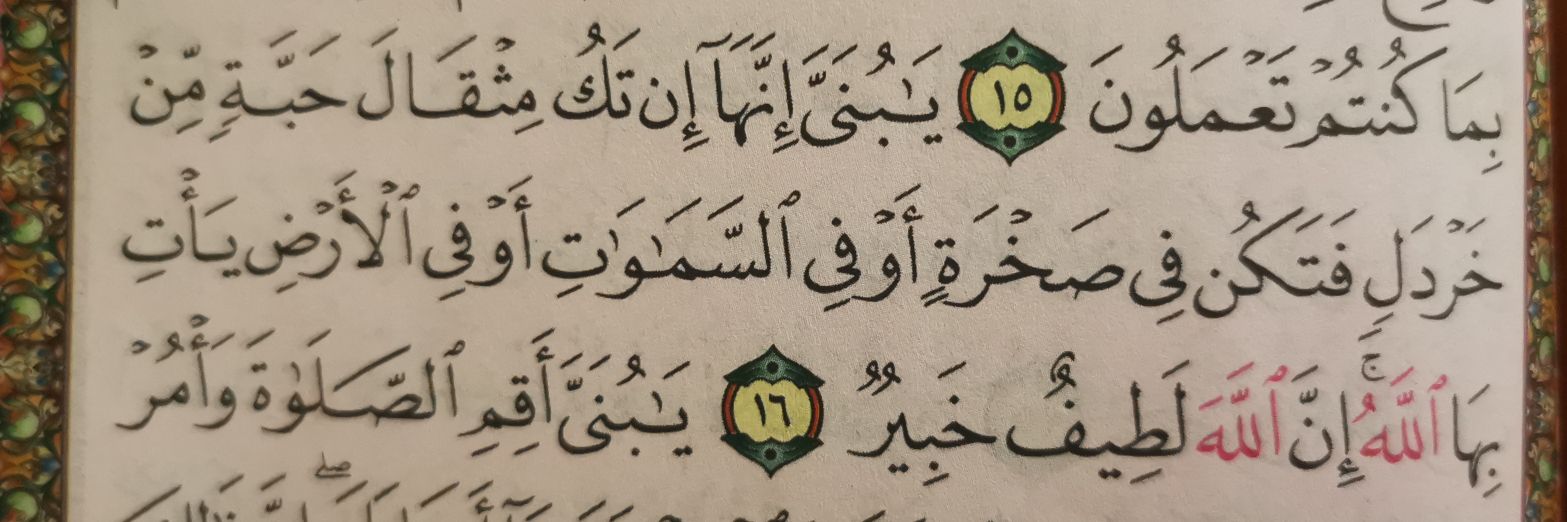 بِمَا كُنتُمْ تَعْمَلُونَ ١٥ يَـٰبُنَىَّ إِنَّهَآ إِن تَكُ مِثْقَالَ حَبَّةٍ مِّنْ
خَرْدَلٍ فَتَكُن فِى صَخْرَةٍ أَوْ فِى ٱلسَّمَـٰوَٰتِ أَوْ فِى ٱلْأَرْضِ يَأْتِ
بِهَا ٱللَّهُ ۚ إِنَّ ٱللَّهَ لَطِيفٌ خَبِيرٌ ١٦ يَـٰبُنَىَّ أَقِمِ ٱلصَّلَوٰةَ وَأْمُرْ